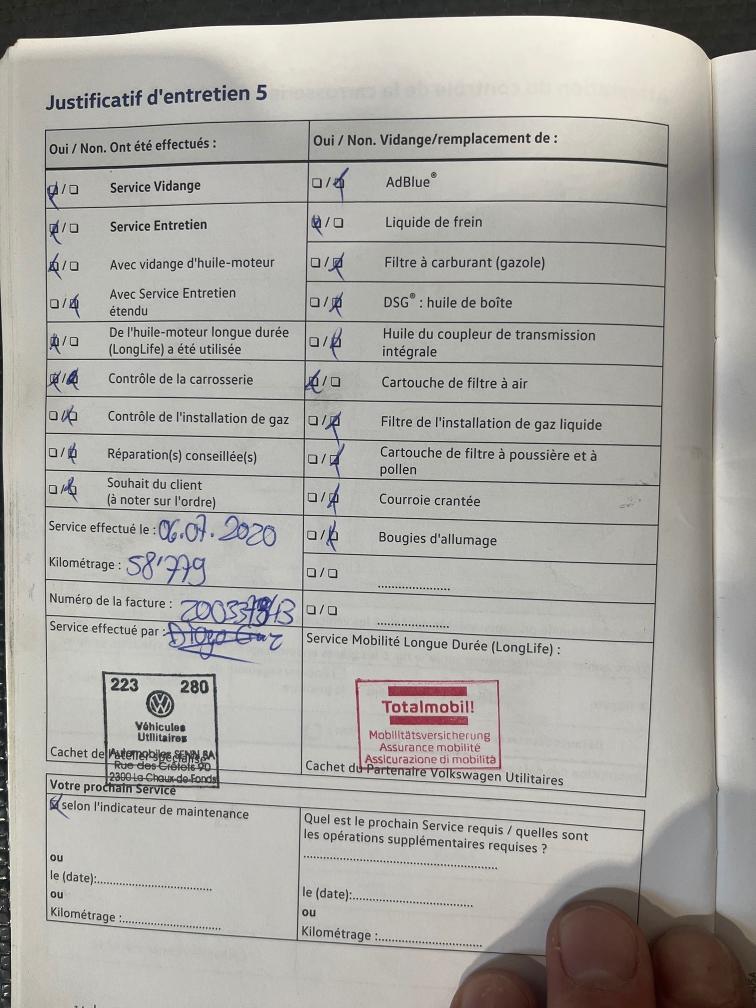 Justificatif d'entretien 5
Oui / Non. Ont été effectués :
Service Vidange
Service Entretien
Avec vidange d'huile-moteur
Avec Service Entretien
étendu
De l'huile-moteur longue durée
(LongLife) a été utilisée
Contrôle de la carrosserie
Contrôle de l'installation de gaz
Réparation(s) conseillée(s)
Souhait du client
(à noter sur l'ordre)
Service effectué le : 06.07.2020
Kilométrage : 58'779
Numéro de la facture :
Service effectué par :
223 280
Véhicules
Utilitaires
Automobiles SENN SA
Rue des Crêtets 90
2300 La Chaux-de-Fonds
Cachet de l'atelier spécialisé
Oui / Non. Vidange/remplacement de :
AdBlue®
Liquide de frein
Filtre à carburant (gazole)
DSG® : huile de boîte
Huile du coupleur de transmission
intégrale
Cartouche de filtre à air
Filtre de l'installation de gaz liquide
Cartouche de filtre à poussière et à
pollen
Courroie crantée
Bougies d'allumage
Service Mobilité Longue Durée (LongLife) :
Totalmobil!
Mobilitätsversicherung
Assurance mobilité
Assicurazione di mobilità
Cachet du Partenaire Volkswagen Utilitaires
Votre prochain Service
selon l'indicateur de maintenance
ou
le (date):
ou
Kilométrage :
Quel est le prochain Service requis / quelles sont
les opérations supplémentaires requises ?
le (date):
ou
Kilométrage :